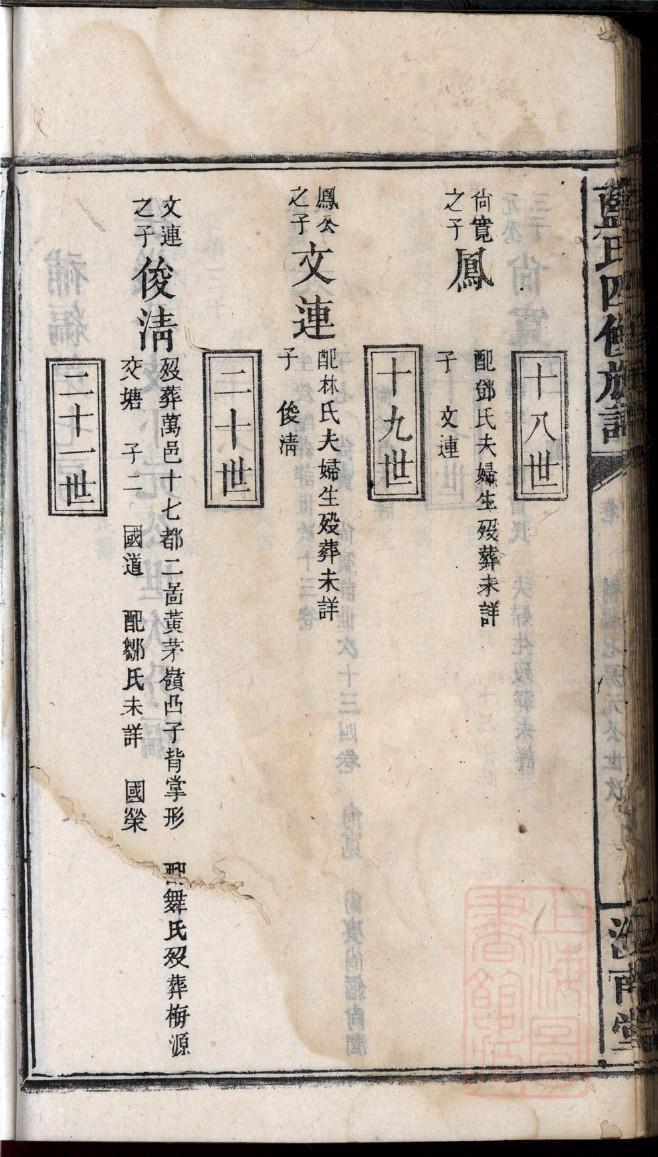 藍氏四修族譜
汝南堂
十八世
尙寬
之子
鳳
配鄧氏夫婦生歿葬未詳
子　文連
十九世
鳳公
之子
文連
配林氏夫婦生歿葬未詳
子　俊淸
二十世
文連
之子
俊淸
歿葬萬邑十七都二啚黃茅嶺凸子背掌形　配舞氏歿葬梅源
交塘　子二　國道　配鄒氏未詳　國榮
二十一世